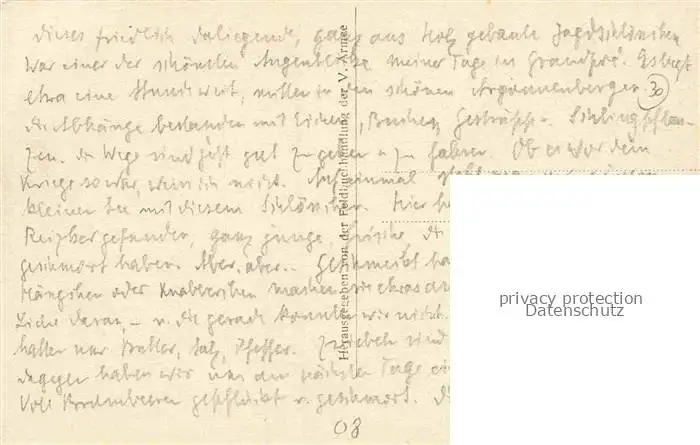 dieses friedlich daliegende, ganz aus Holz gebaute Jagdschlösschen
war einer der schönsten Augenblicke meiner Tage in Grandpré. Es liegt
etwa eine Stunde weit, mitten in den schönen Argonnenbergen,
30
die Abhänge bestanden mit Eichen, Buchen, Gesträuch u. Schlingpflan-
zen. die Wege sind jetzt gut zu gehen u. zu fahren. Ob er vor dem
Kriege so war, weiss ich nicht. Auf einmal steht man
kleinen See mit diesem Schlösschen. Hier
gefunden, ganz junge, frische, die
geschmort haben. Aber, aber..
Hängchen oder Knabbereien machen sie etwas
daran, – u. die gerade konnten wir nicht
hatten nur Butter, Salz, Pfeffer. Zwiebeln sind
dagegen haben wir uns am nächsten Tage
voll Brombeeren gepflückt u. geschmort.
03
Herausgegeben von der Feldbuchhandlung der V. Armee
privacy protection
Datenschutz